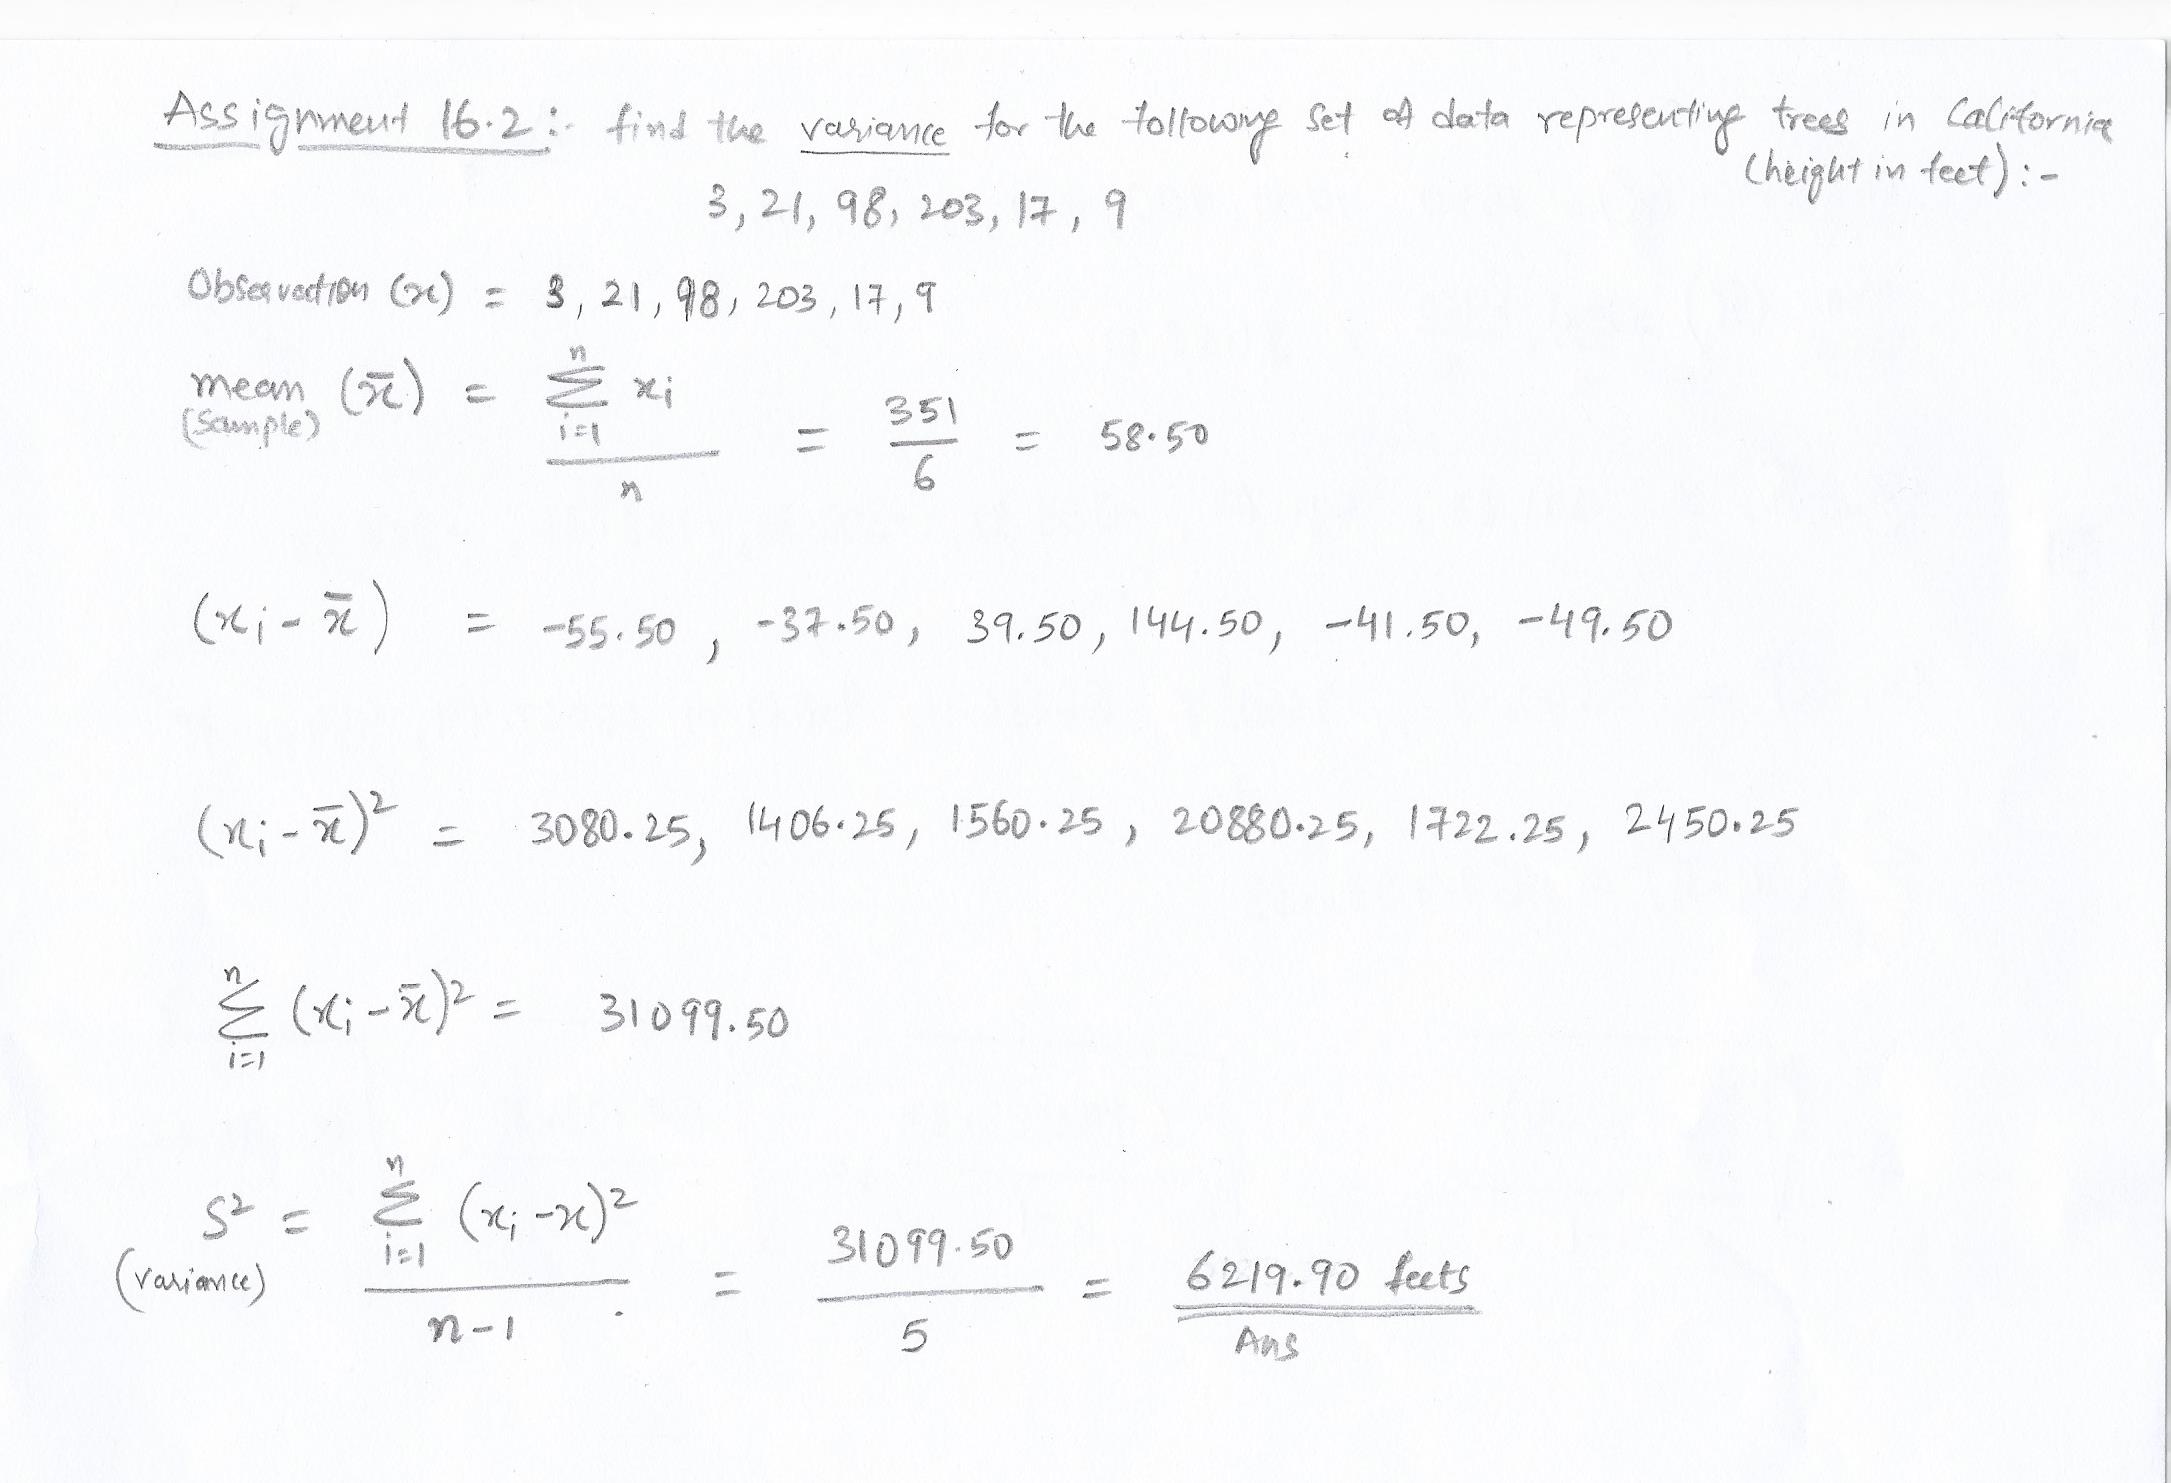 Assignment 16.2 :- find the variance for the following set of data representing trees in California
(height in feet) :-
3, 21, 98, 203, 17, 9
Observation (x) = 3, 21, 98, 203, 17, 9
mean (x̄) = Σ xi / n = 351 / 6 = 58.50
(Sample)
n
i=1
(xi - x̄) = -55.50 , -37.50, 39.50, 144.50, -41.50, -49.50
(xi - x̄)² = 3080.25, 1406.25, 1560.25, 20880.25, 1722.25, 2450.25
n
Σ (xi - x̄)² = 31099.50
i=1
n
S² = Σ (xi - x)² / n-1 = 31099.50 / 5 = 6219.90 feets
i=1
(variance)
Ans